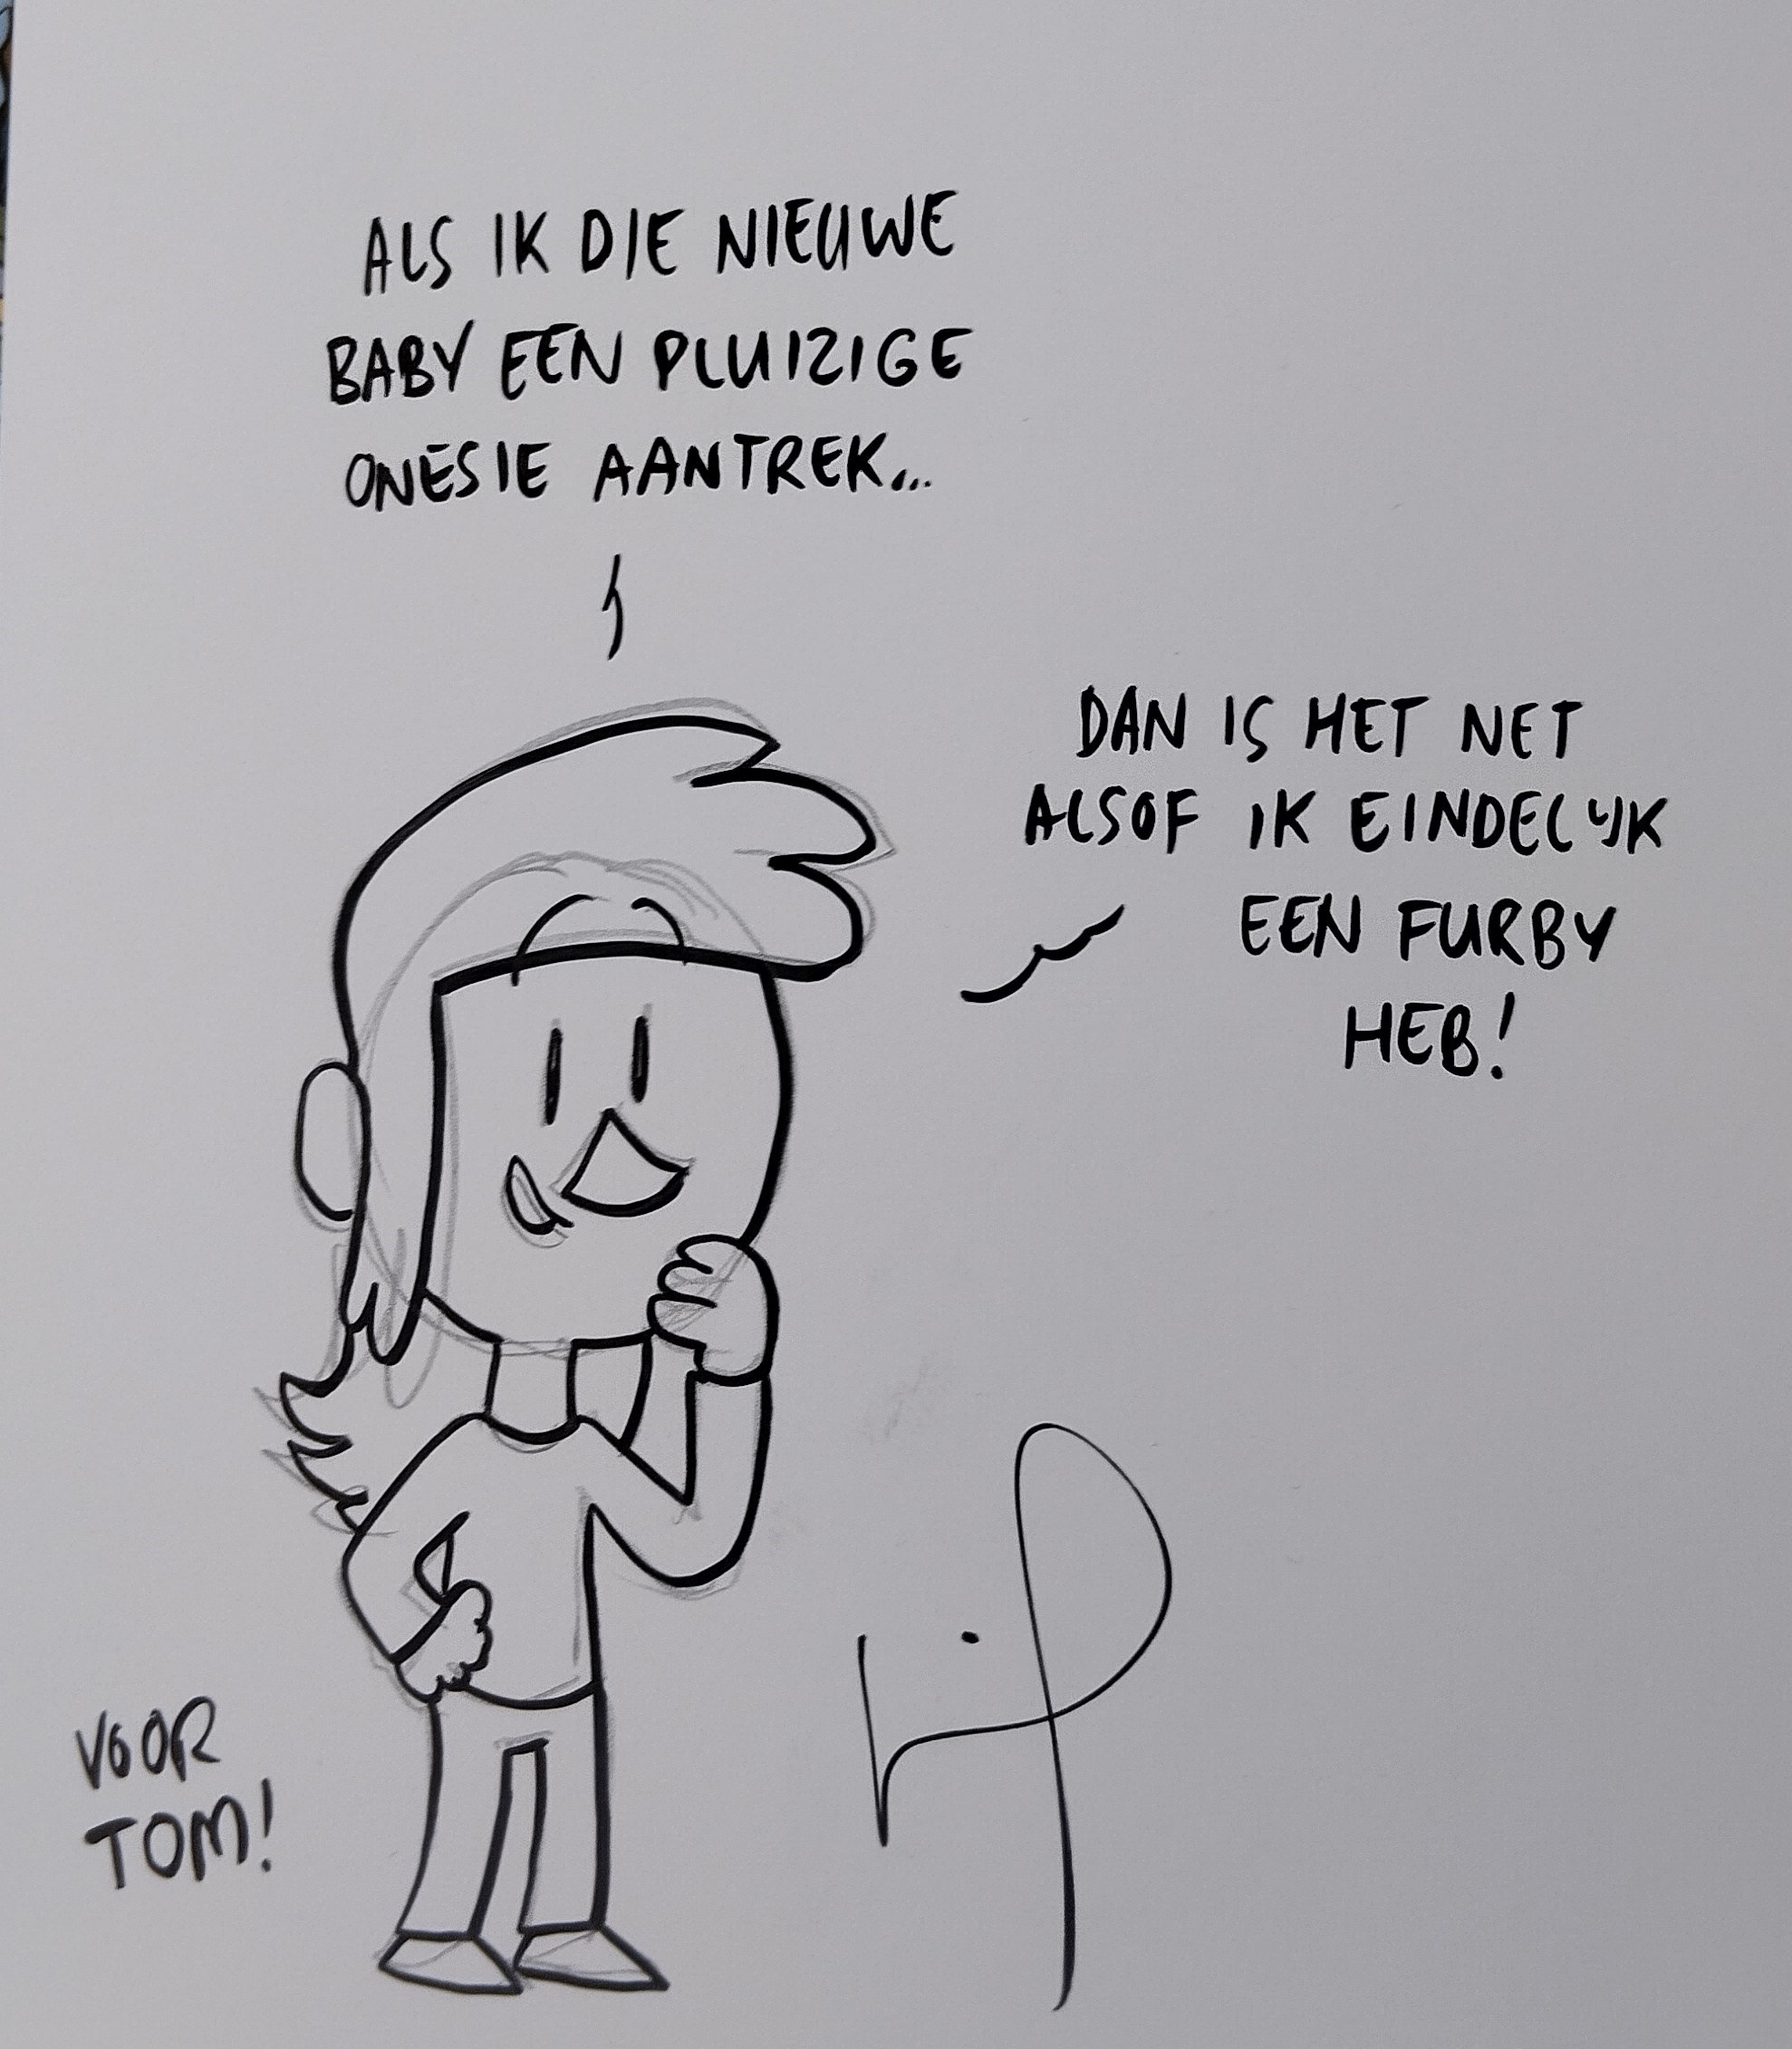 ALS IK DIE NIEUWE
BABY EEN PLUIZIGE
ONESIE AANTREK...
DAN IS HET NET
ALSOF IK EINDELIJK
EEN FURBY
HEB!
VOOR
TOM!